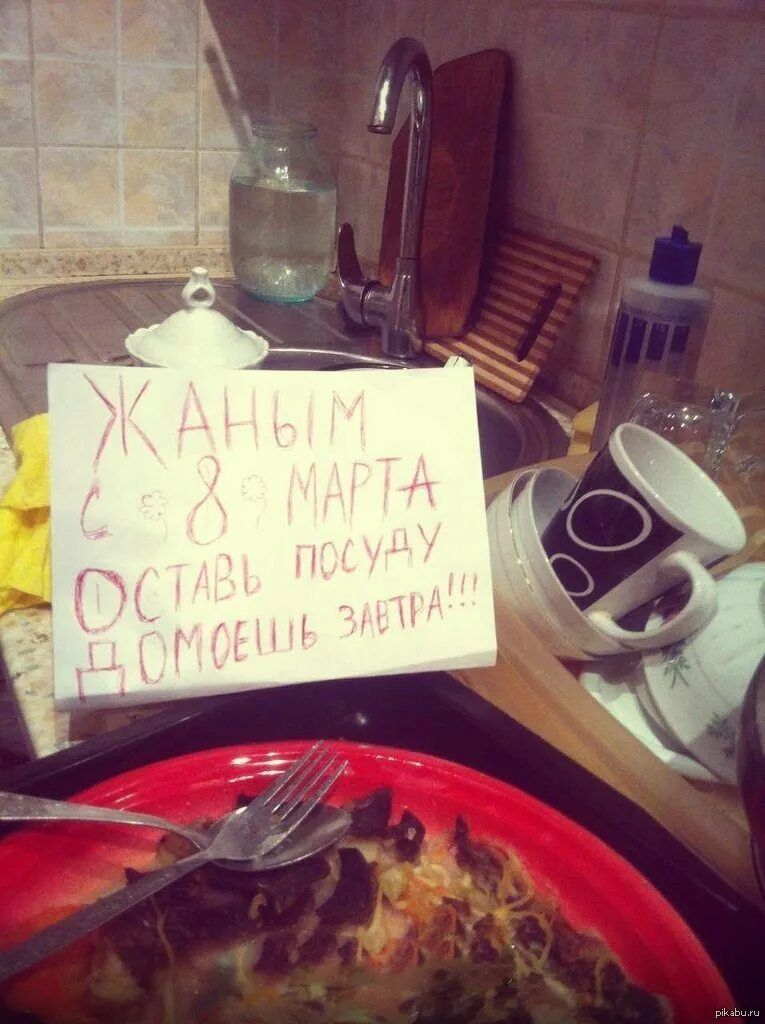 ЖАНЫМ
С 8 МАРТА
ОСТАВЬ ПОСУДУ
ДОМОЕШЬ ЗАВТРА!!!
pikabu.ru